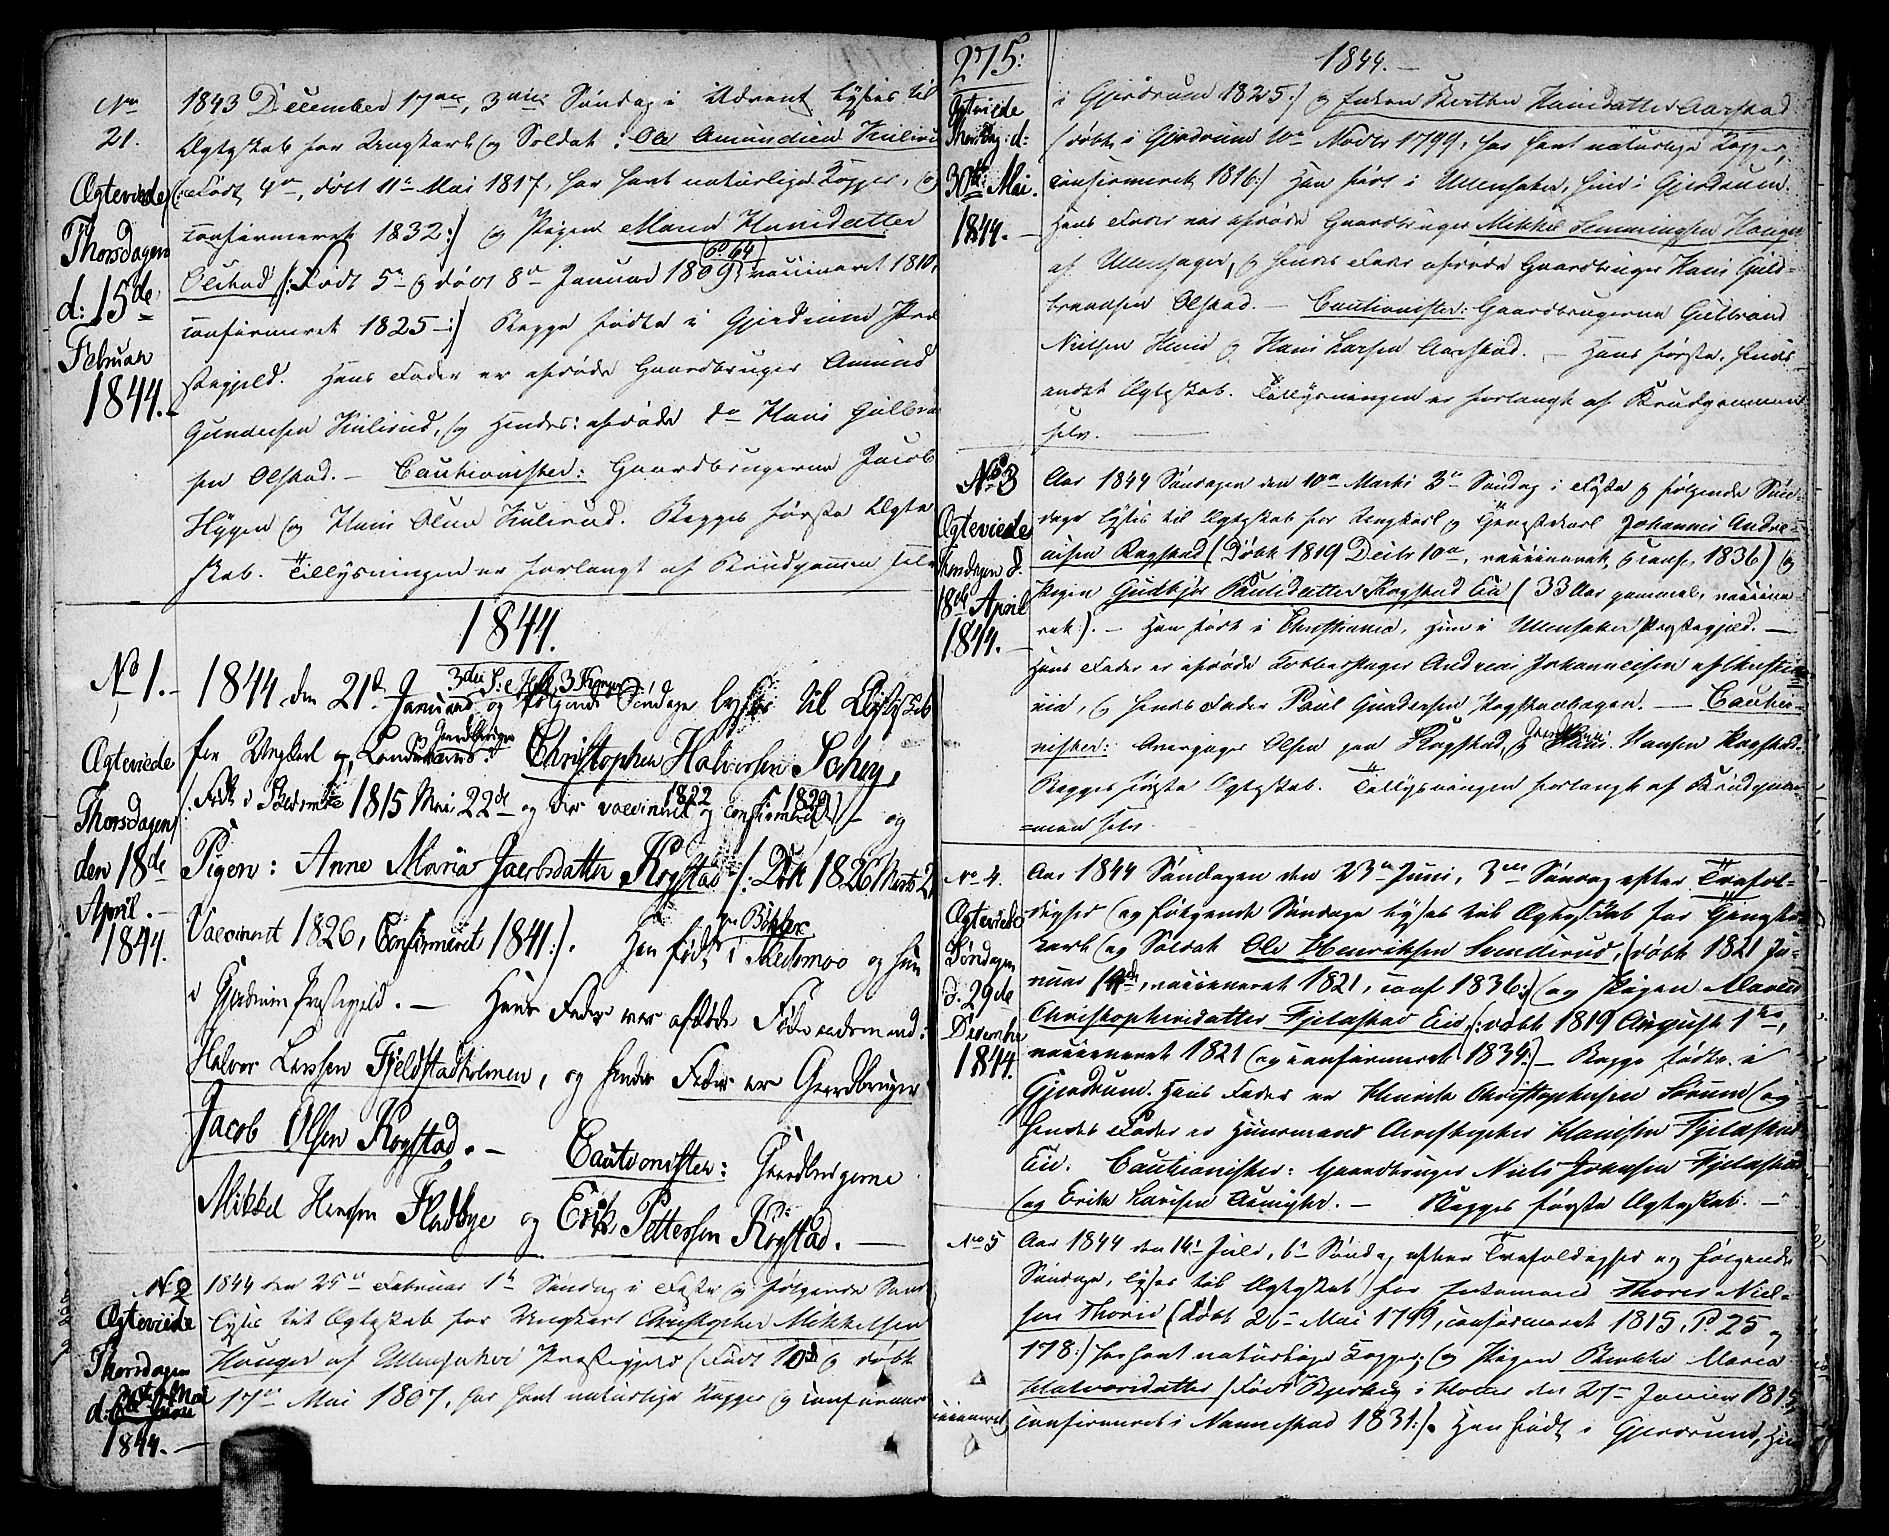 No
21.
Ægteviede
Thorsdagen
d: 15de
Februar
1844.
1843 December 17de, 3die Søndag i Advent lyses til
Ægteskab for Ungkarl og Soldat: Ole Amundsen Kulsrud
(: født 4de, døbt 11te Mai 1817, har havt naturlige Kopper, og
confirmeret 1832:) og Pigen Maria Hansdatter
Olstad (: Født 5te og døbt 8de Januar 1809, vaccineret 1810,
confirmeret 1825 :) Begge fødte i Gjerdrum Præ
stegjeld. Hans Fader er afdøde Gaardbruger Amund
Gundersen Kulsrud, og Hendes: afdøde do Hans Gulbrand
sen Olstad. – Cautionister: Gaardbrugerne Jacob
Hÿgen og Hans Olsen Kulsrud. Begges første Ægte
skab. Tillysningen er forlangt af Brudgommen selv
1844.
No 1.
Ægteviede
Thorsdagen
den 18de
April.
1844.
1844 den 21de Januar og følgende Søndage lyses til Ægteskab
for Ungkarl og Gaardbruger Christopher Halvorsen
(: Født i Skedsmoe 1815 Mai 22de og der vaccineret 1822 og confirmeret 1829 :) og
Pigen: Anne Maria Jacobsdatter Kogstad (: Døbt 1826 Marts 2
Vaccineret 1826, Confirmeret 1841 :). Han født i Skedsmoe og hun
i Gjerdrum Præstegjeld. – Hans Fader var afdøde
Halvor Larsen Fjeldstadholmen, og hendes Fader er Gaardbruger
Jacob Olsen Kogstad. – Cautionister: Gaardbrugerne
Mikkel Hansen Fladbye og Erik Pettersen Kogstad.
No 2
Ægteviede
Thorsdagen
d: 30te Mai
1844.
1844 den 25de Februar 1te Søndag i Faste og følgende Sønd
lyses til Ægteskab for Ungkarl Christopher Mikkelsen
Hauger af Ullensaker Præstegjeld (født 10de og døbt
17de Mai 1807, har havt naturlige Kopper og confirmer
275:
1844.
Ægteviede
Thorsdag d:
30te Mai.
1844.
i Gjerdrum 1825:) og Enken Berthe Hansdatter Aarstad
(døbt i Gjerdrum 10de Novbr 1799, har havt naturlige Kopper,
confirmeret 1816:) Han født i Ullensaker, hun i Gjerdrum.
Hans Fader var afdøde Gaardbruger Mikkel Hemmingsen Hauger
af Ullensager, og hendes Fader afdøde Gaardbruger Hans Guld-
brandsen Olstad. – Cautionister: Gaardbrugerne Gulbrand
Nielsen og Hans Larsen Aarstad. – Hans første, hendes
andet Ægteskab. Tillysningen er forlangt af Brudgommen
selv.
No 3
Ægteviede
Thorsdagen d.
18de April
1844.
Aar 1844 Søndagen den 10de Marts 3die Søndag i Faste og følgende Søn-
dage lyses til Ægteskab for Ungkarl og Johannes Andre-
asen Kogstad (Døbt 1819 Decbr 10de, vaccineret og conf. 1836) og
Pigen Gudbjør Paulsdatter Kogstad Eie (33 Aar gammel, vaccine-
ret:). – Han født i Christiania, Hun i Ullensaker Præstegjeld. –
Hans Fader er afdøde Andreas Johannesen af Christia
nia, og hendes Fader Paul Gundersen Kogstadhagen. – Cautio-
nister: Olsen paa Kogstad, og Hans Hansen Kogstad.
Begges første Ægteskab. Tillysningen forlangt af Brudgom-
=men selv.
No 4.
Ægteviede
Søndagen
d. 29de
December
1844.
Aar 1844 Søndagen den 23de Juni, 3die Søndag efter Trefol-
dighed og følgende Søndage lyses til Ægteskab for Ungka
karl og Soldat Ole Henriksen Svenderud, (døbt 1821 Ja-
nuar 14de, vaccineret 1821, conf 1836:) og Pigen Maren
Christophersdatter Fjelstad Eie, (: døbt 1819 August 1ste,
vaccineret 1821 og confirmeret 1834:) – Begge fødte i
Gjerdrum. Hans Fader er Henrik Christophersen Sørum og
hendes Fader er Huusmand Christopher Hansen Fjelstad
Eie. Cautionister: Gaardbruger Niels Johnsen Fjelstad
og Erik Larsen. – Begges første Ægteskab. –
No 5
Aar 1844 den 14de Juli, 6te Søndag efter Trefoldighed og følgende
Søndage, lyses til Ægteskab for Enkemand Thores Niel-
sen (døbt 26de Mai 1799, confirmeret 1815, P. 25 og
178:) har havt naturlige Kopper, og Pigen Maria
Halvorsdatter (født i Holter den 27de Januar 1815,
vaccineret, confirmeret i Nannestad 1831:). Han født i Gjerdrum, Hun